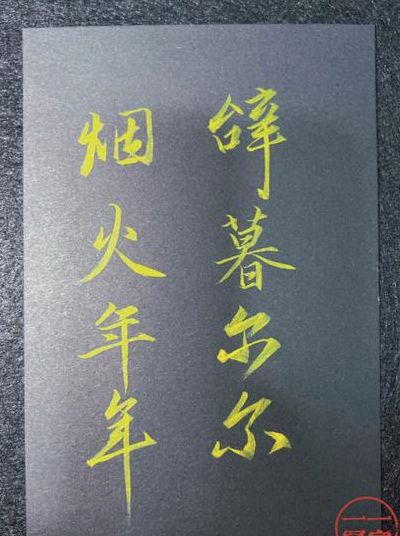 辞暮尔尔
烟火年年